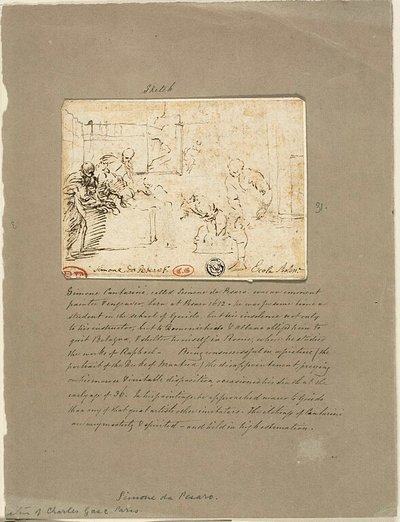 Sketch
39.
Simone da Pesaro.
Simone Cantarini, called Simone da Pesaro, was an eminent
painter & engraver, born at Pesaro 1612 - he was some time a
student in the school of Guido, but his insolence not only
to his instructor, but to Domenichino & Albano obliged him to
quit Bologna, & shelter himself in Rome, where he studied
the works of Raphael. Being unsuccessful in a picture (the
portrait of the Duke of Mantua) the disappointment preying
on his and irritable disposition occasioned his death at the
early age of 36. In his paintings he approached nearer to Guido
than any of that great artist's other imitators. The etchings of Cantarini
are & spirited - and held in high estimation.
Simone da Pesaro.
of Charles Gasc Paris